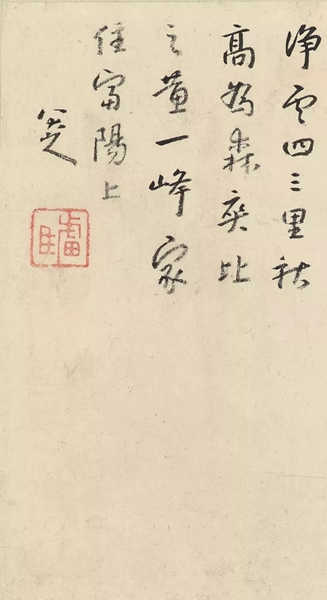 淨雲四三里秋
高為森爽比
之黃一峰家
住富陽上
八大